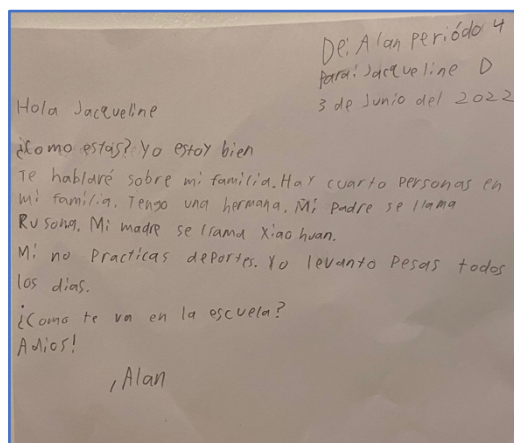 De: Alan periódo 4
Para: Jacqueline D
3 de Junio del 2022
Hola Jacqueline
¿Como estas? Yo estoy bien
Te hablaré sobre mi familia. Hay cuarto personas en
mi familia. Tengo una hermana. Mi padre se llama
Rusong. Mi madre se llama Xiao huan.
Mi no practicas deportes. Yo levanto pesas todos
los dias.
¿Como te va en la escuela?
Adios!
, Alan